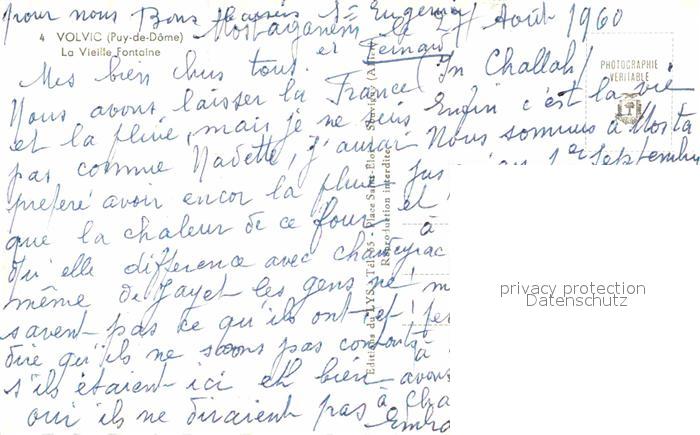 pour nous Bons Baisers Ste Eugenie
Mostaganem le 27 Août 1960
4 VOLVIC (Puy-de-Dôme)
La Vieille Fontaine
et Fernand
Mes bien chers tous
Nous avons laisser la France
et la pluie, mais je ne suis
pas comme Nadette, j'aurai
préféré avoir encor la pluie
que la chaleur de ce four
qu'elle difference avec
même de Jayet les gens ne
savent pas ce qu'ils ont et
dire qu'ils ne soons pas contents
s'ils étaient ici eh bien
oui ils ne diraient pas
(In Challah)
Enfin c'est la vie
Nous sommes à Mosta
jus 1er Septembre
et
à
à
avons
à Cha
Embra
Editions du LYS - Tél. 65 - Place Saint-Eloi - Souvigny (Allier)
Reproduction interdite
PHOTOGRAPHIE
VERITABLE
privacy protection
Datenschutz